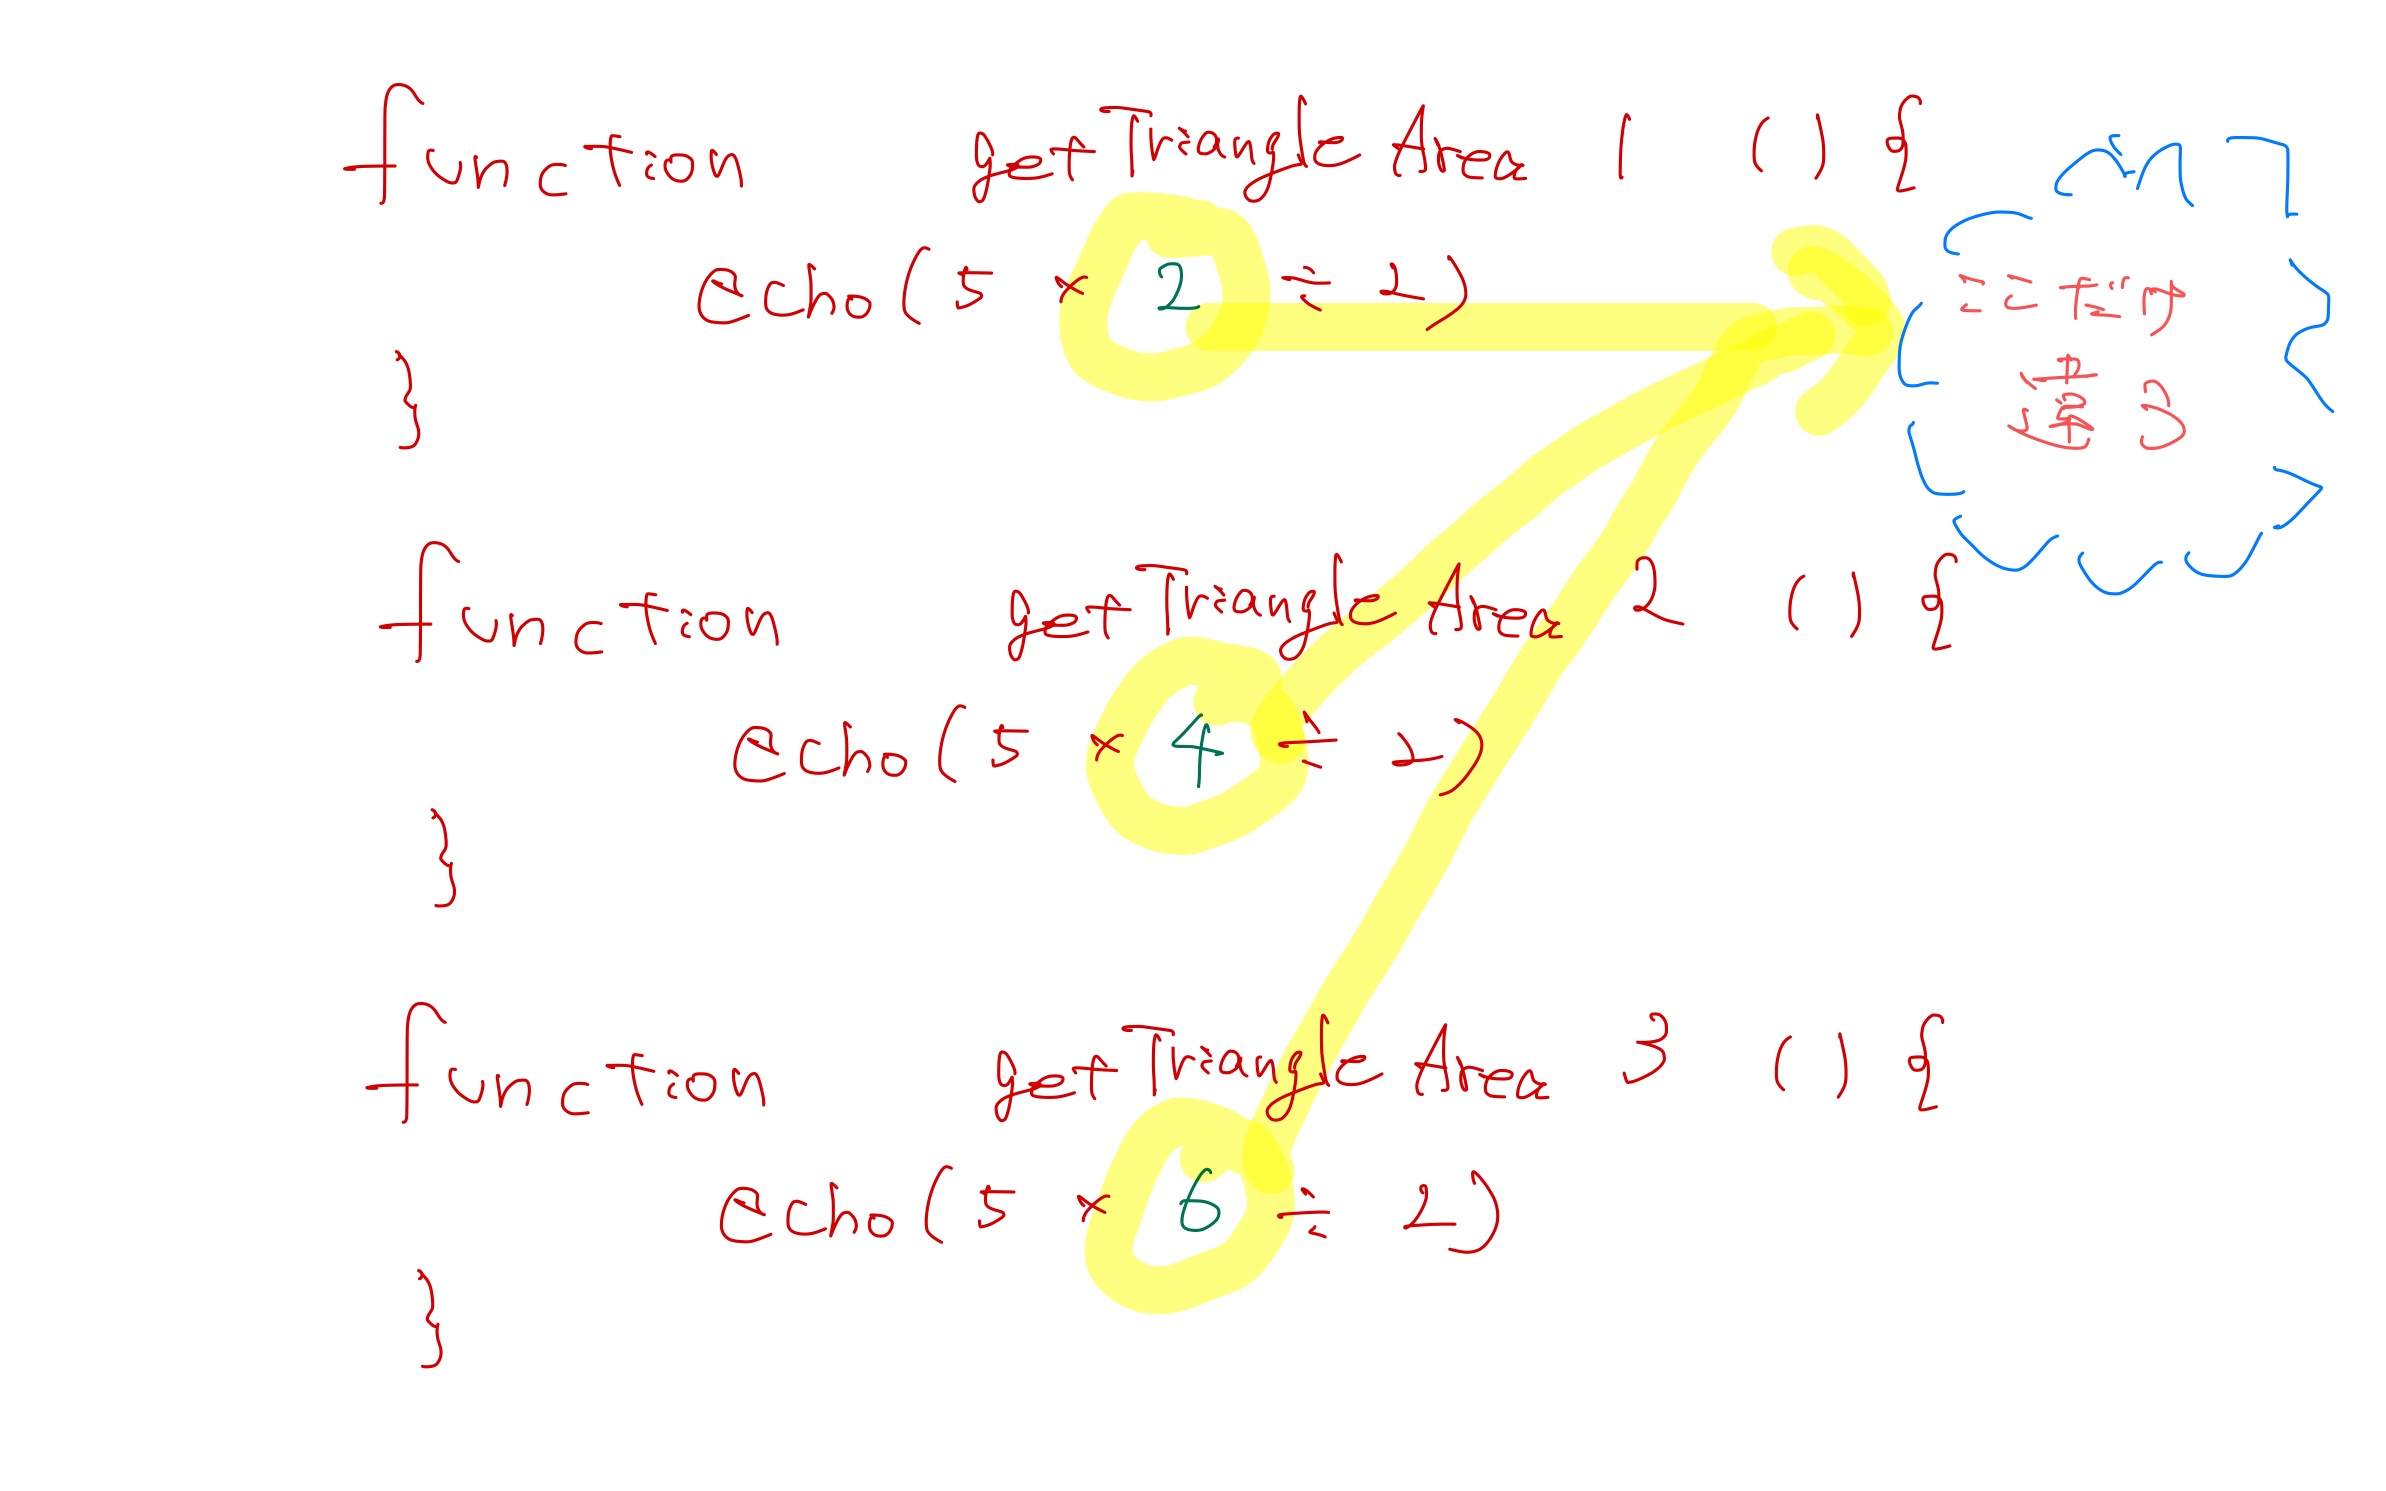 function getTriangle Area 1 () {
echo (5 × 2 ÷ 2)
}
ここだけ
違う
function getTriangle Area 2 () {
echo (5 × 4 ÷ 2)
}
function getTriangle Area 3 () {
echo (5 × 6 ÷ 2)
}